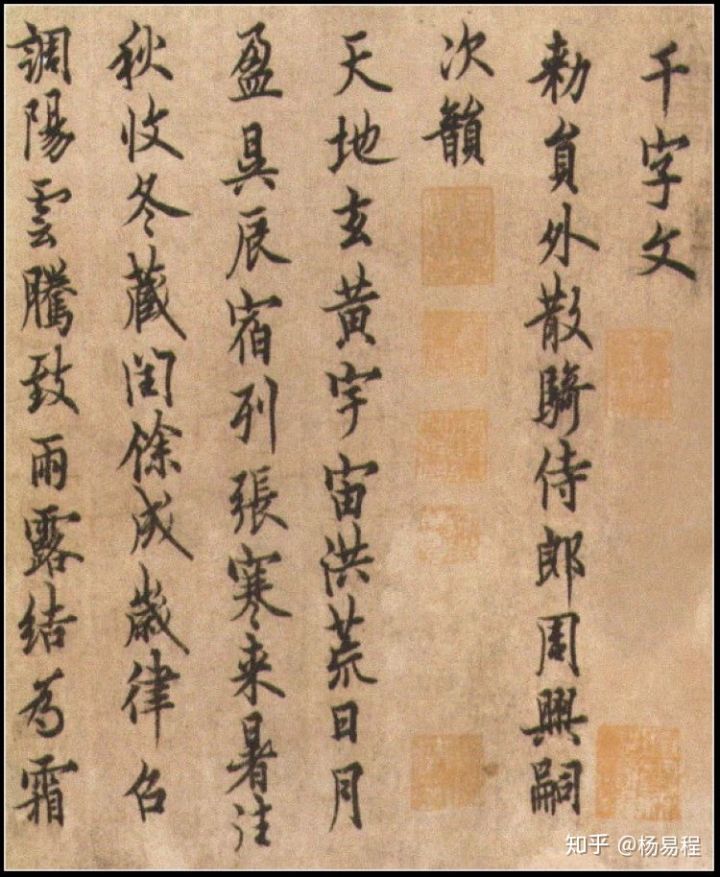 千字文
勑貟外散騎侍郎周興嗣
次韻
天地玄黃宇宙洪荒日月
盈昃辰宿列張寒来暑往
秋收冬蔵閏餘成嵗律召
調陽雲騰致雨露結為霜
知乎 @杨易程